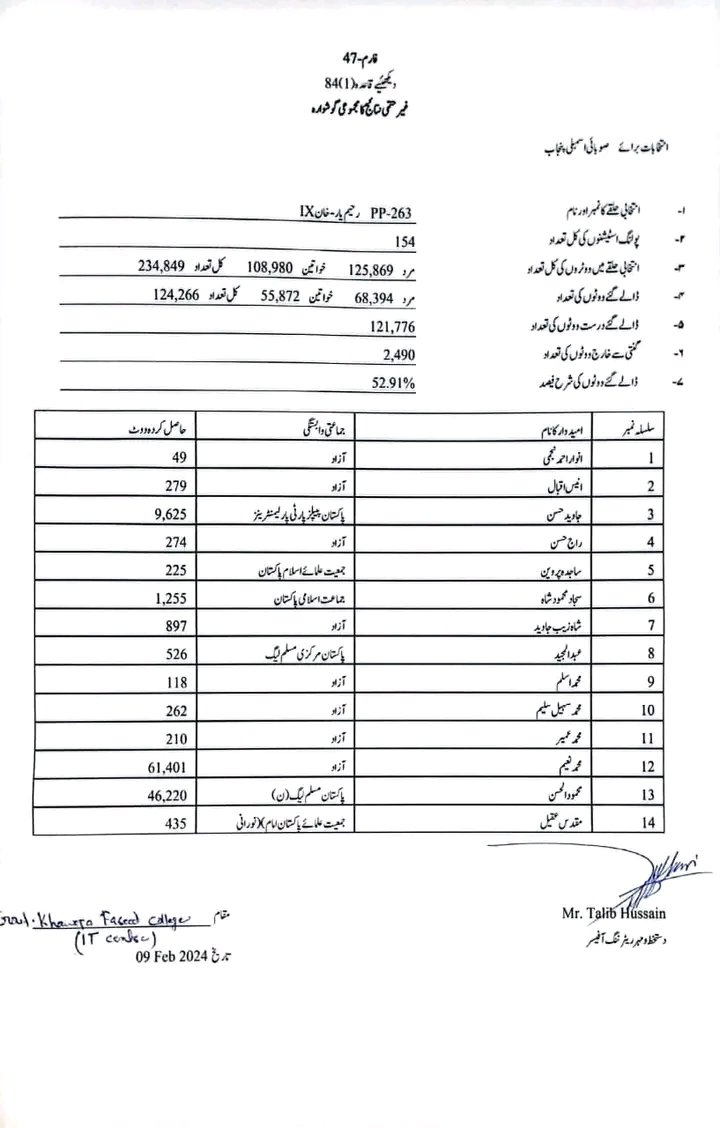 فارم-47
دیکھیئے قاعدہ (1)84
غیر حتمی نتائج کا مجموعی گوشوارہ
انتخابات برائے صوبائی اسمبلی پنجاب
۱- انتخابی حلقے کا نمبر اور نام PP-263 رحیم یار-خان IX
۲- پولنگ اسٹیشنوں کی کل تعداد 154
۳- انتخابی حلقے میں ووٹروں کی کل تعداد مرد 125,869 خواتین 108,980 کل تعداد 234,849
۴- ڈالے گئے ووٹوں کی تعداد مرد 68,394 خواتین 55,872 کل تعداد 124,266
۵- ڈالے گئے درست ووٹوں کی تعداد 121,776
۶- گنتی سے خارج ووٹوں کی تعداد 2,490
۷- ڈالے گئے ووٹوں کی شرح فیصد 52.91%
سلسلہ نمبر امیدوار کا نام جماعتی وابستگی حاصل کردہ ووٹ
1 انوار احمد نجمی آزاد 49
2 انیس اقبال آزاد 279
3 جاوید حسن پاکستان پیپلز پارٹی پارلیمنٹرینز 9,625
4 راج حسن آزاد 274
5 ساجدہ پروین جمعیت علمائے اسلام پاکستان 225
6 سجاد محمود شاہ جماعت اسلامی پاکستان 1,255
7 شاہ زیب جاوید آزاد 897
8 عبدالمجید پاکستان مرکزی مسلم لیگ 526
9 محمد اسلم آزاد 118
10 محمد سہیل سلیم آزاد 262
11 محمد عمیر آزاد 210
12 محمد نعیم آزاد 61,401
13 محمود الحسن پاکستان مسلم لیگ (ن) 46,220
14 مقدس عقیل جمعیت علمائے پاکستان امام)(نورانی 435
Mr. Talib Hussain
دستخط و مہر ریٹرننگ آفیسر
مقام Govt. Khawja Fareed College
(IT center)
تاریخ 09 Feb 2024